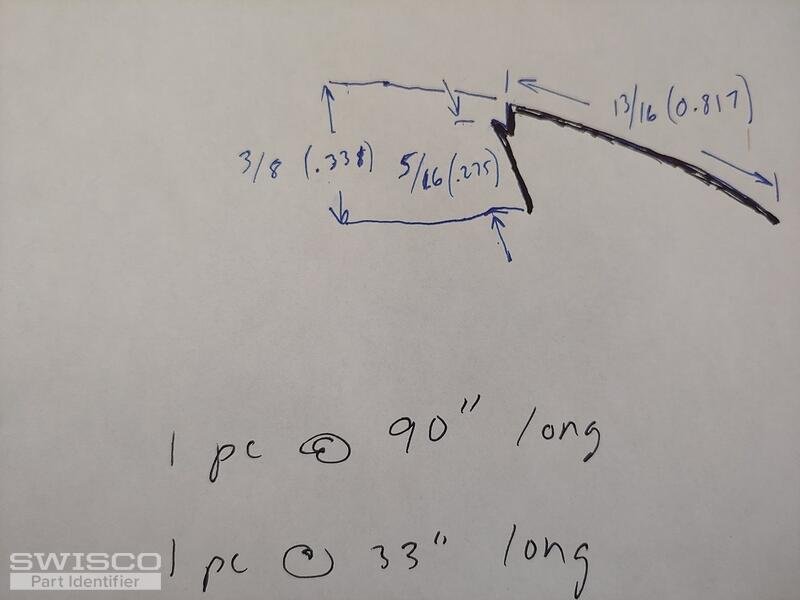 13/16 (0.817)
3/8 (.338) 5/16 (.275)
1 pc @ 90" long
1 pc @ 33" long
SWISCO
Part Identifier